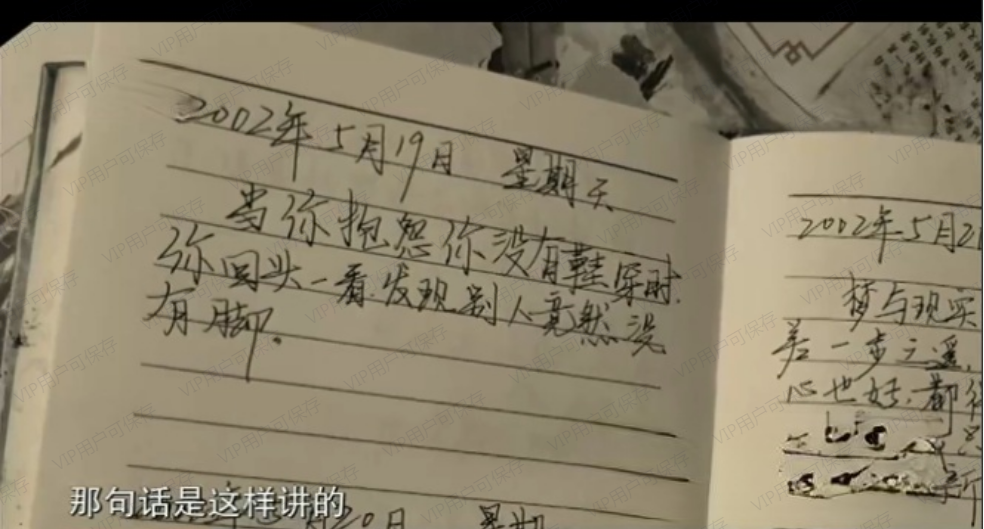 2002年5月19日 星期天
当你抱怨你没有鞋穿时,
你回头一看,发现别人竟然没
有脚。
月20日 星期
2002年5月21
梦与现实
差一步之遥,
心也好,都
那句话是这样讲的
VIP用户可保存